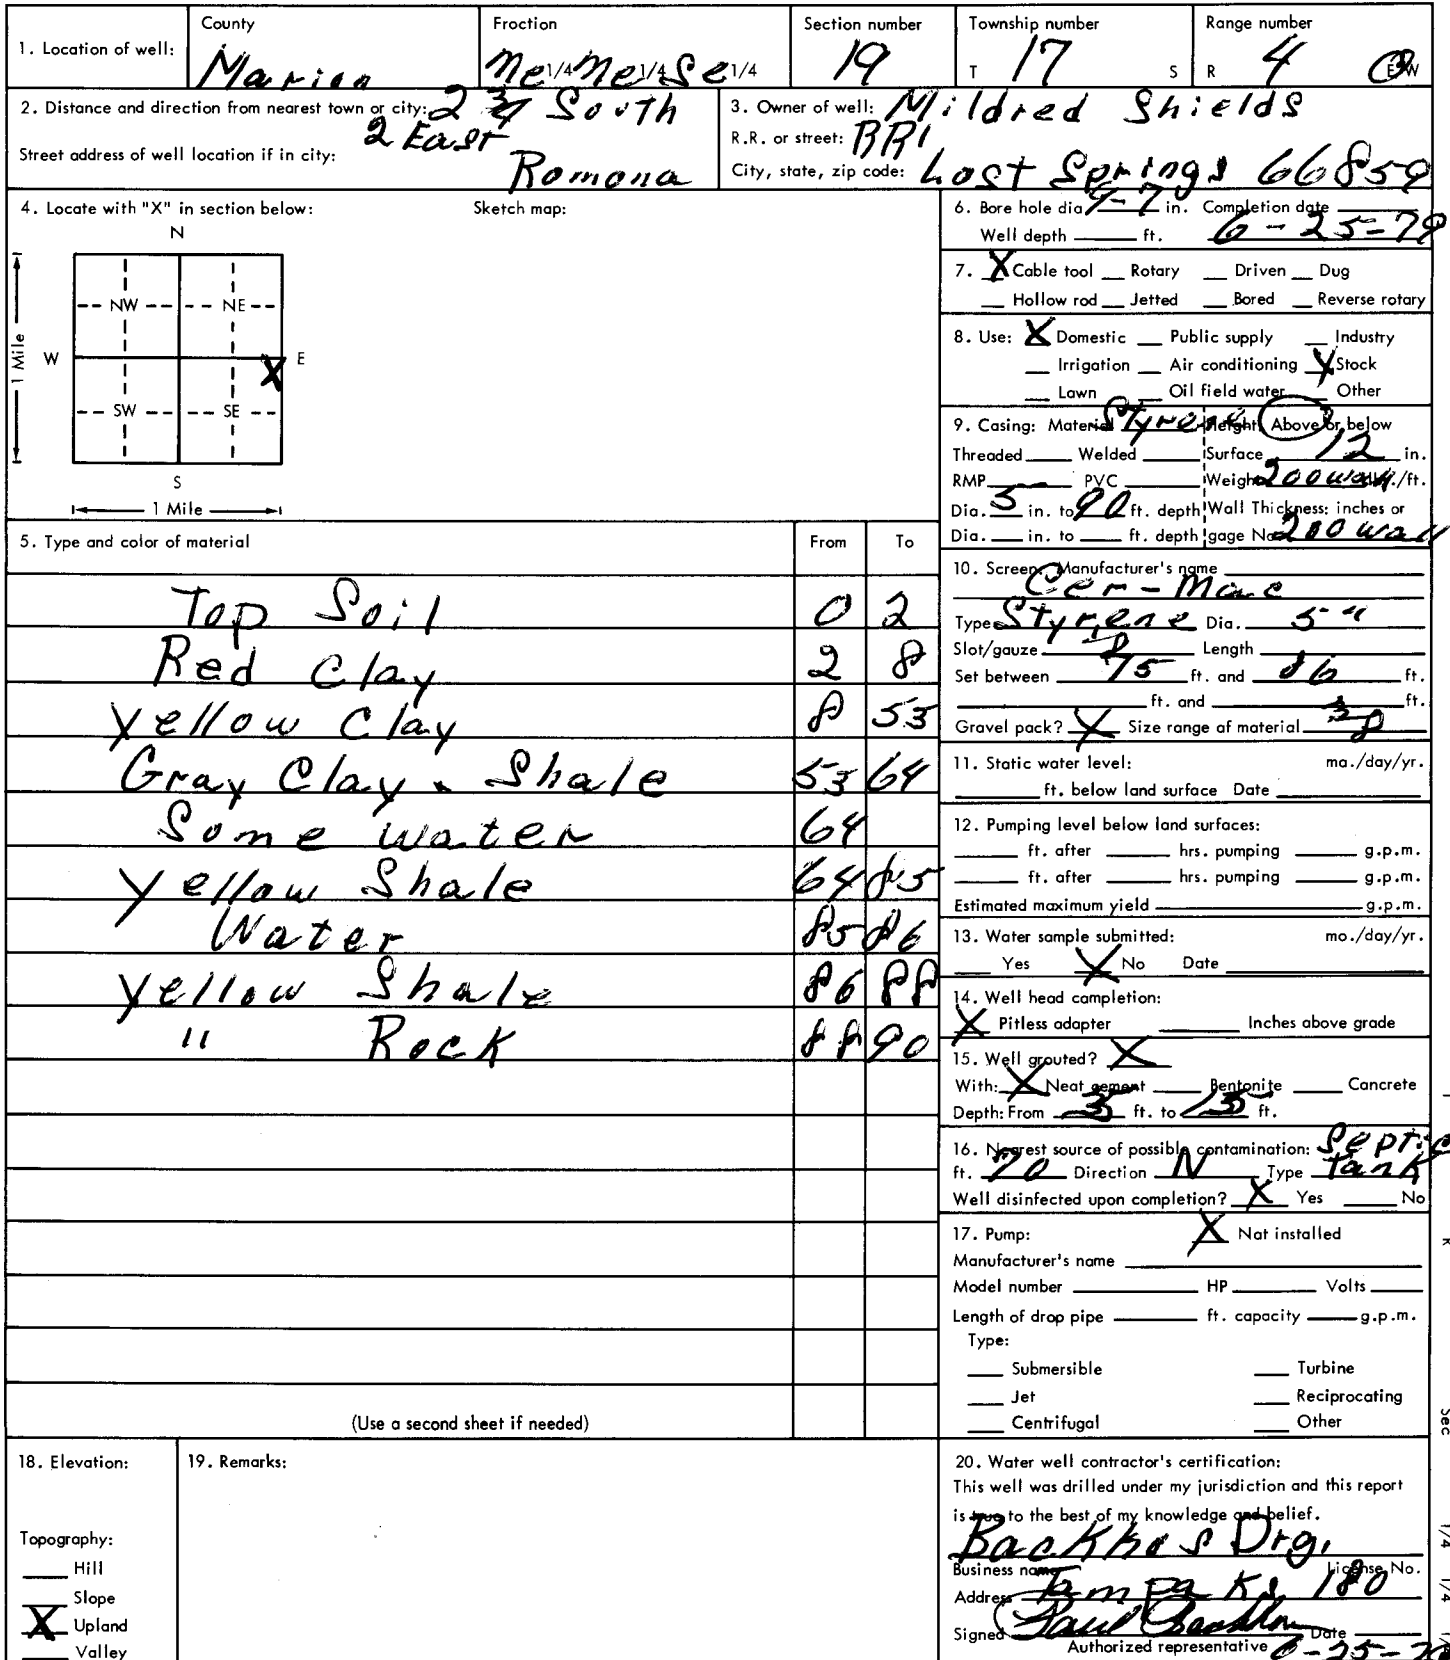 1. Location of well:
County
Marion
Froction
Ne 1/4 Ne 1/4 Se 1/4
Section number
19
Township number
T 17 S
Range number
R 4 E W
2. Distance and direction from nearest town or city: 2 3/4 South
2 East
Street address of well location if in city:
Romona
3. Owner of well: Mildred Shields
R.R. or street: RR1
City, state, zip code: Lost Springs 66859
4. Locate with "X" in section below:
Sketch map:
N
NW NE
1 Mile
W X E
SW SE
S
1 Mile
6. Bore hole dia 9-7 in. Completion date
Well depth ft. 6-25-79
7. X Cable tool Rotary Driven Dug
Hollow rod Jetted Bored Reverse rotary
8. Use: X Domestic Public supply Industry
Irrigation Air conditioning X Stock
Lawn Oil field water Other
9. Casing: Material Styrene Height: Above or below
Threaded Welded Surface 12 in.
RMP PVC Weight 200 wall /ft.
Dia. 5 in. to 90 ft. depth Wall Thickness: inches or
Dia. in. to ft. depth gage No 200 wall
5. Type and color of material From To
Top Soil 0 2
Red Clay 2 8
Yellow Clay 8 53
Gray Clay - Shale 53 64
Some water 64
Yellow Shale 64 85
Water 85 86
Yellow Shale 86 88
" Rock 88 90
(Use a second sheet if needed)
10. Screen: Manufacturer's name
Cer-Mac
Type Styrene Dia. 5"
Slot/gauze Length
Set between 75 ft. and 86 ft.
ft. and ft.
Gravel pack? X Size range of material
11. Static water level: mo./day/yr.
ft. below land surface Date
12. Pumping level below land surfaces:
ft. after hrs. pumping g.p.m.
ft. after hrs. pumping g.p.m.
Estimated maximum yield g.p.m.
13. Water sample submitted: mo./day/yr.
Yes X No Date
14. Well head completion:
X Pitless adapter Inches above grade
15. Well grouted? X
With: X Neat cement Bentonite Concrete
Depth: From ft. to ft.
16. Nearest source of possible contamination: Septic
ft. 70 Direction N Type Tank
Well disinfected upon completion? X Yes No
17. Pump: X Not installed
Manufacturer's name
Model number HP Volts
Length of drop pipe ft. capacity g.p.m.
Type:
Submersible Turbine
Jet Reciprocating
Centrifugal Other
18. Elevation:
Topography:
Hill
Slope
X Upland
Valley
19. Remarks:
20. Water well contractor's certification:
This well was drilled under my jurisdiction and this report
is true to the best of my knowledge and belief.
Backhus Drg.
Business name License No.
Address Tampa Ks 180
Signed Paul Date
Authorized representative 6-25-79
Sec
1/4 1/4